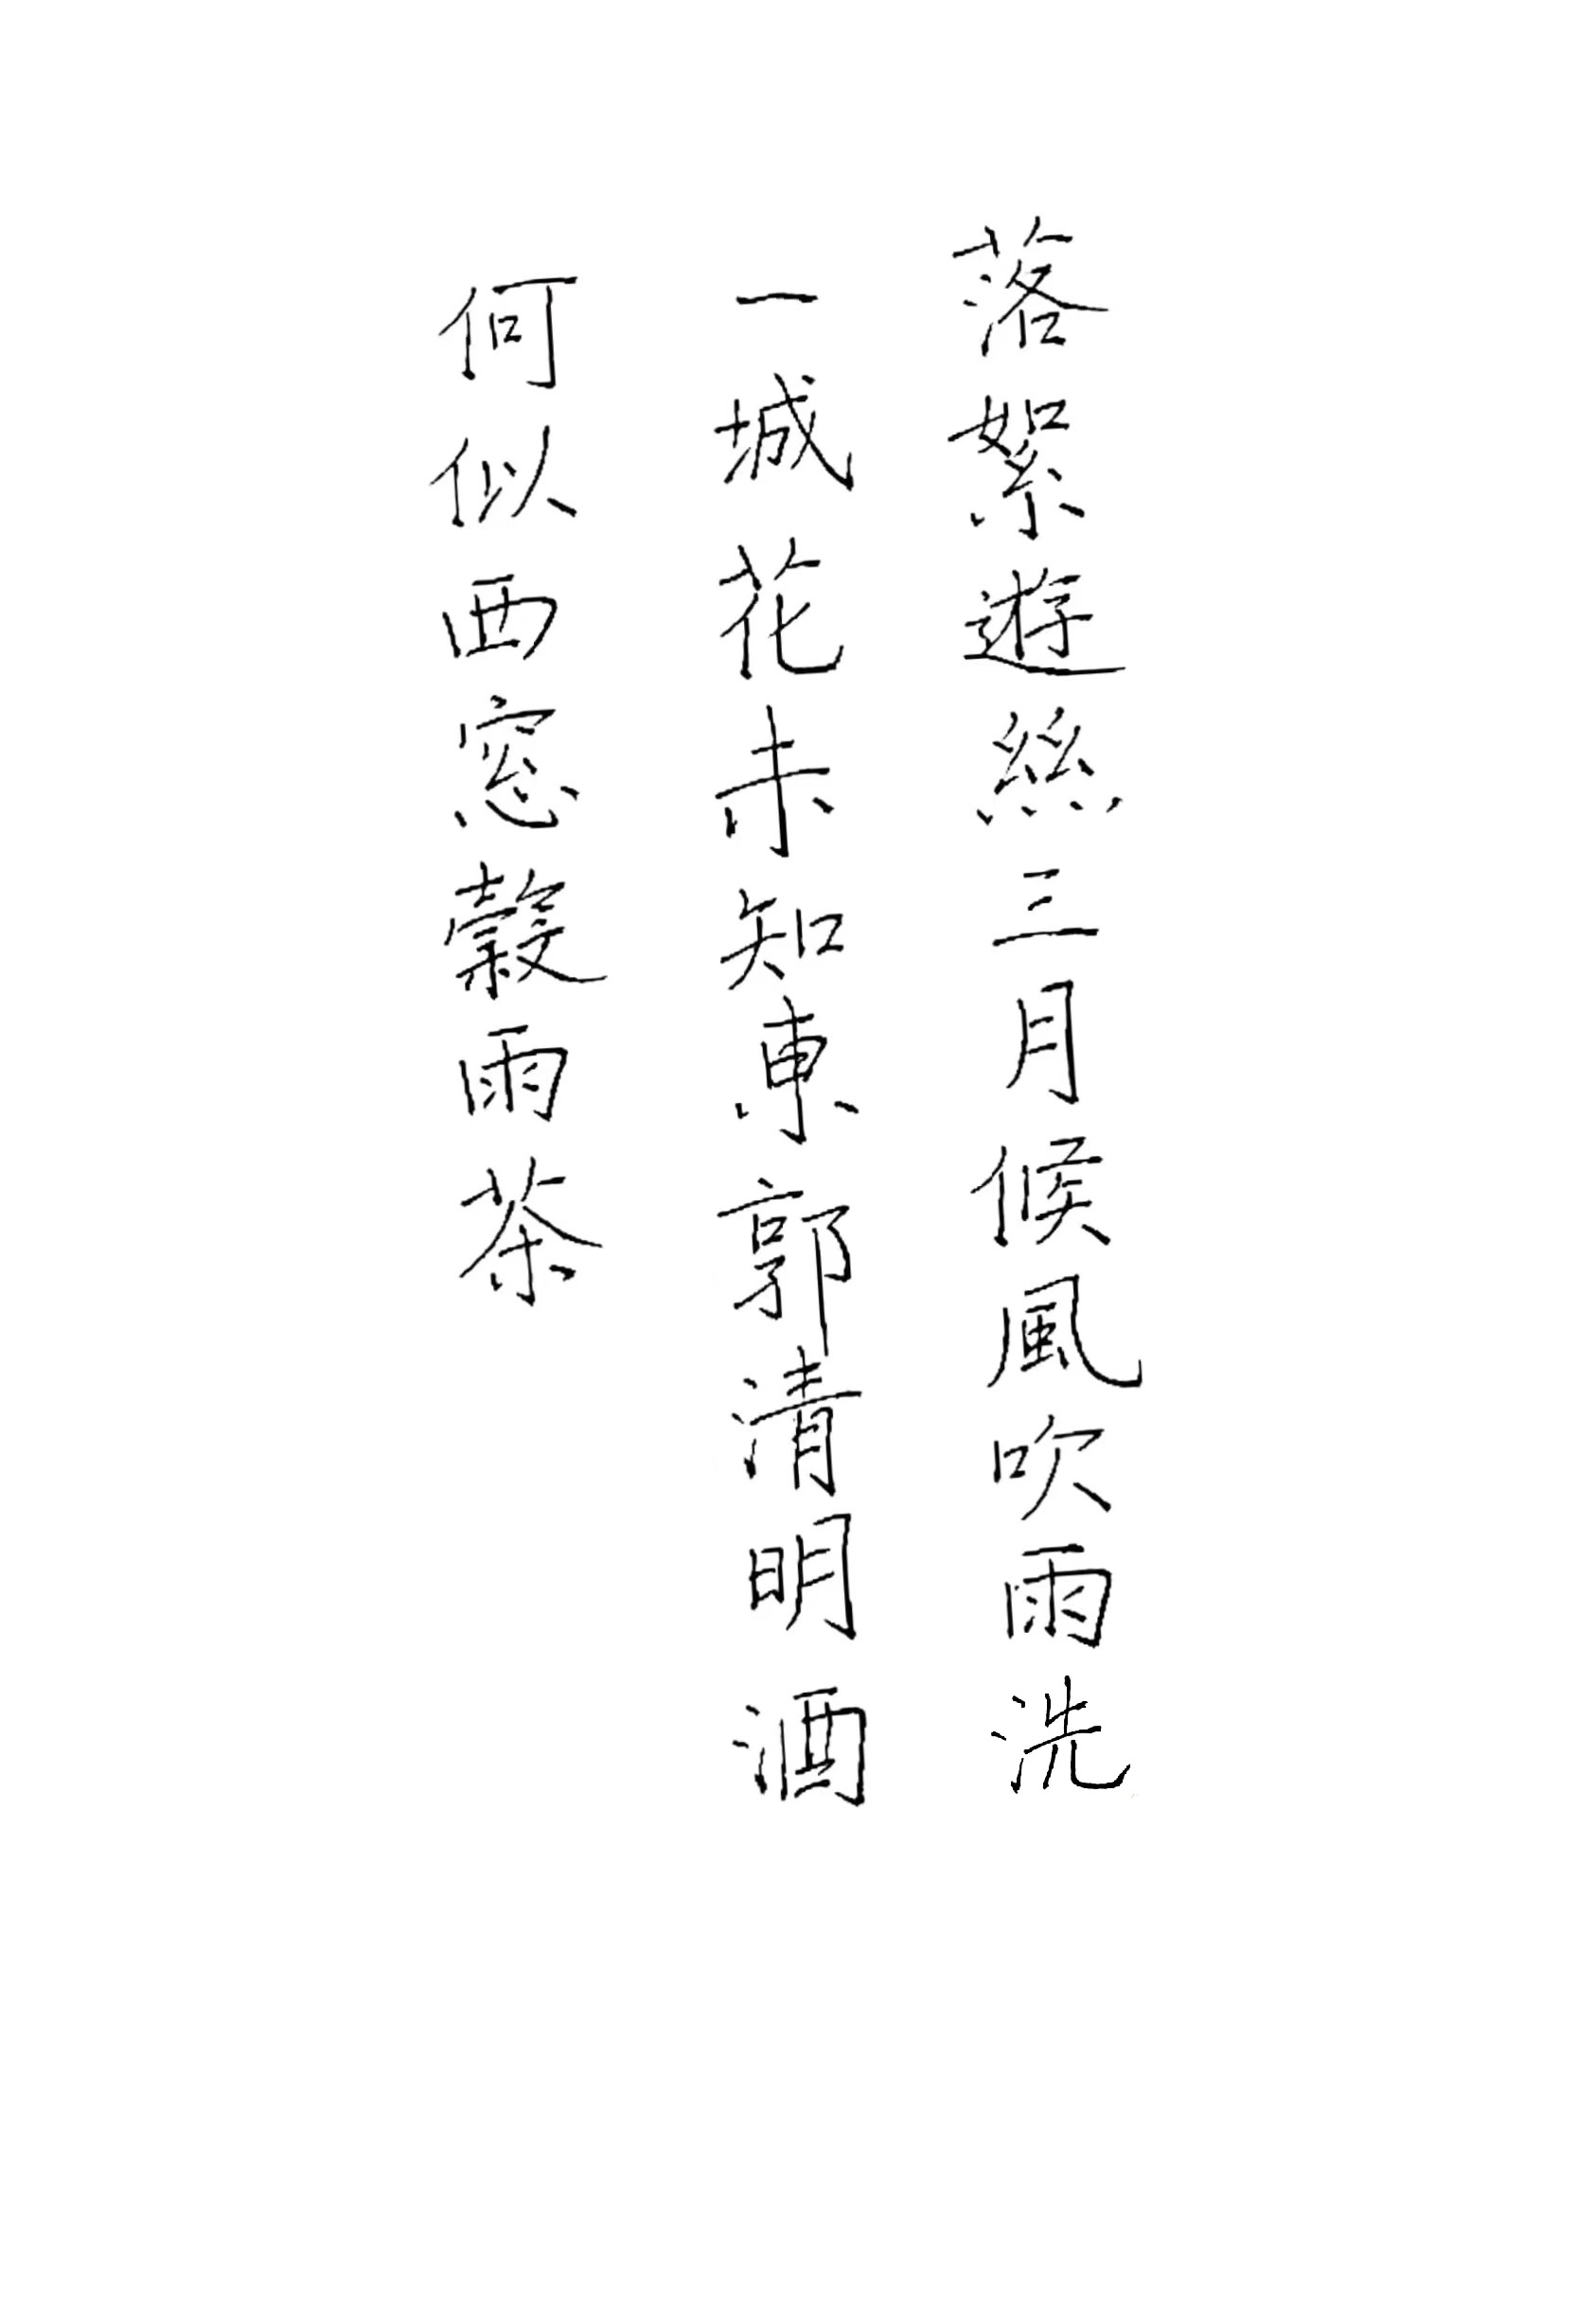 落絮遊絲三月候風吹雨洗
一城花未知東郭清明酒
何似西窓穀雨茶